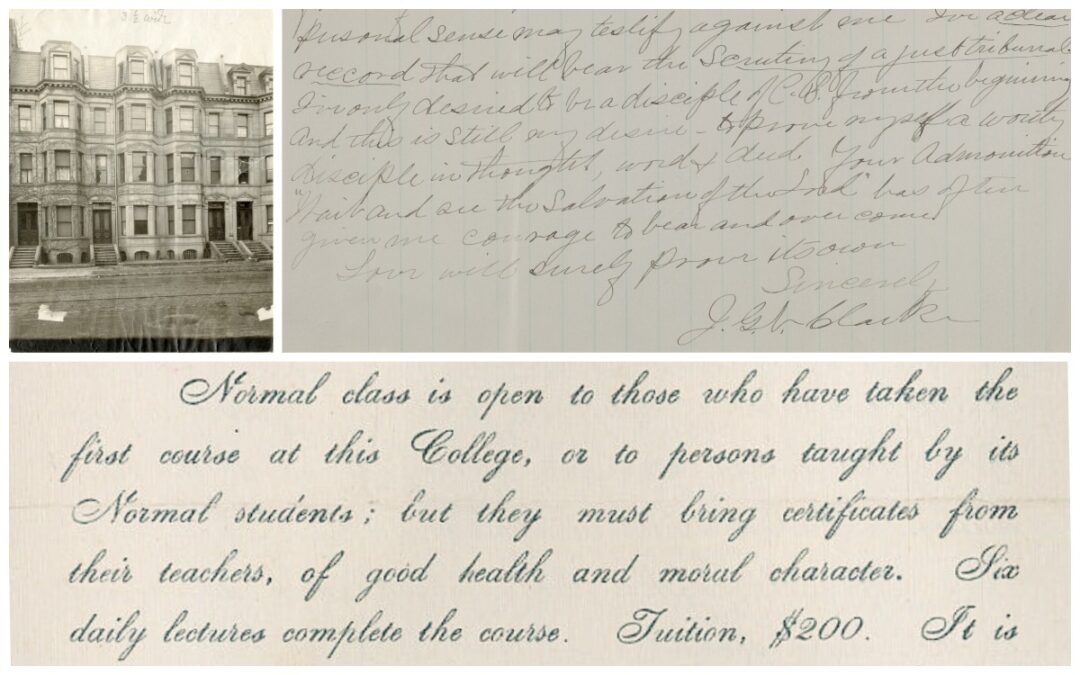 personal sense may testify against me I've a clear
record that will bear the Scrutiny of a just tribunal
I've only desired to be a disciple of C.S. from the beginning
And this is still my desire - to prove myself a worthy
disciple in thought, word & deed Your Admonition
"Wait and see the Salvation of the Lord" has often
given me courage to bear and overcome
Love will surely prove its own
Sincerely
J. G. Clarke
Normal class is open to those who have taken the
first course at this College, or to persons taught by its
Normal students; but they must bring certificates from
their teachers, of good health and moral character. Six
daily lectures complete the course. Tuition, $200. It is